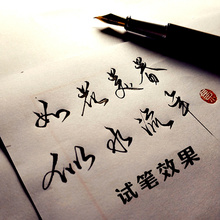 如花美眷
似水流年
试笔效果